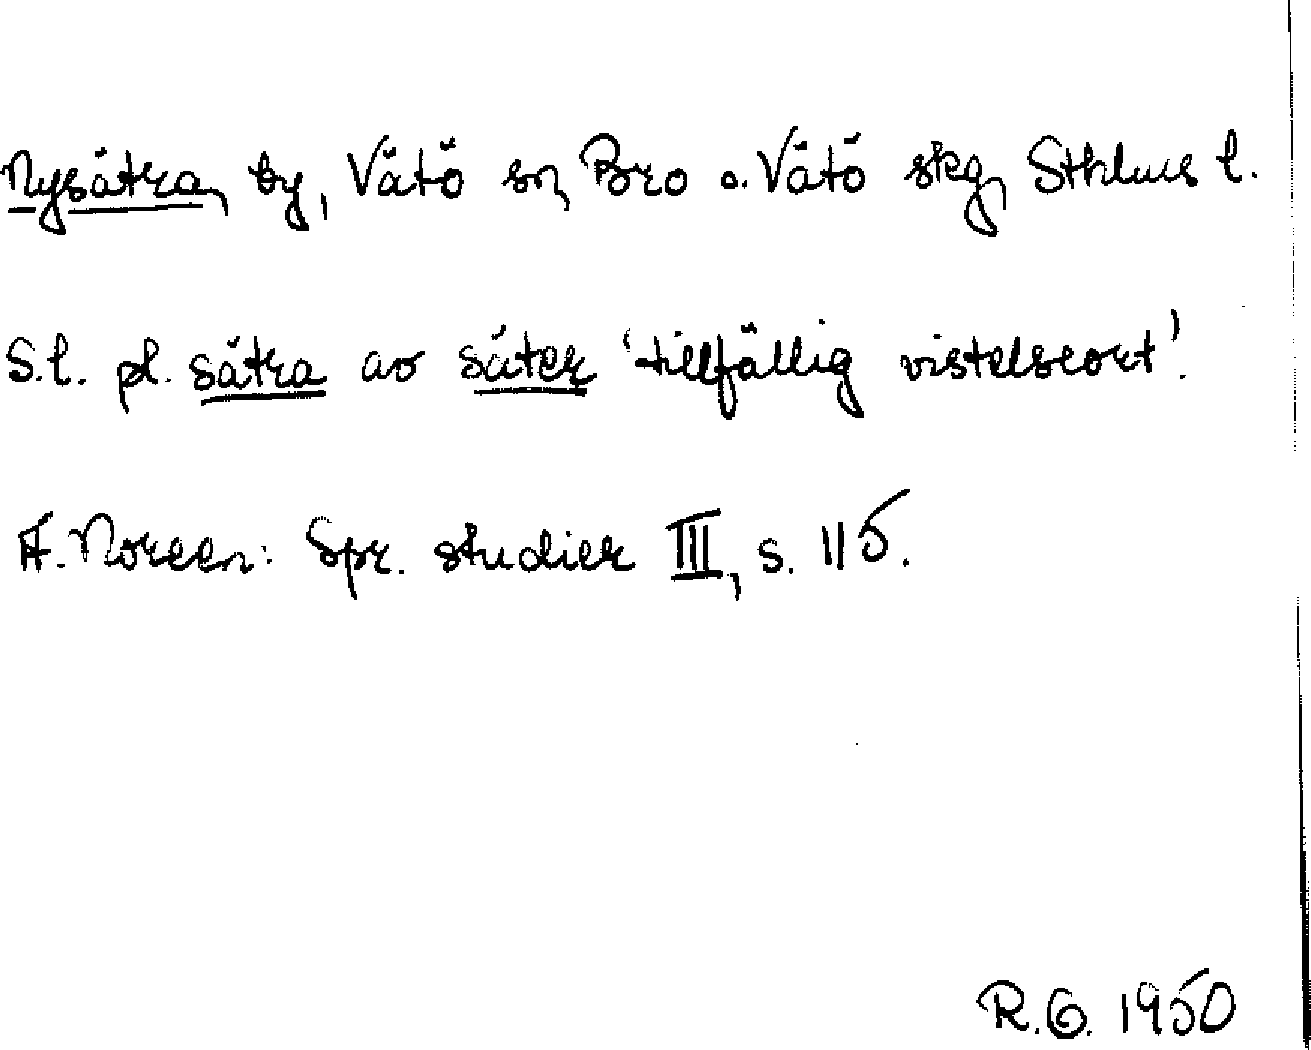 Nysätra, by, Vätö sn, Bro o. Vätö skg, Sthlms l.
S.l. pl. sätra av säter 'tillfällig vistelseort'.
A. Noreen: Spr. studier III, s. 115.
R.G. 1950